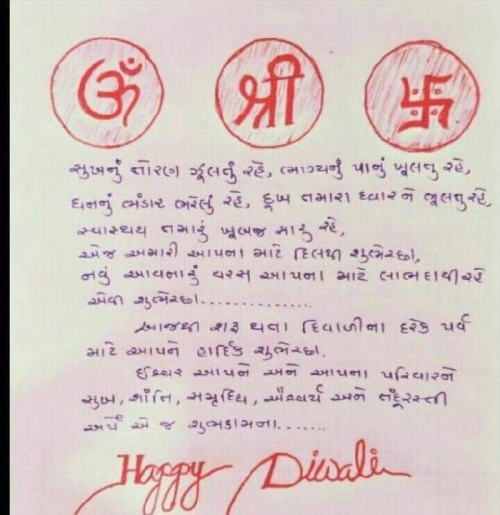 ૐ શ્રી 卐
સુખનું તોરણ ઝૂલતું રહે, ભાગ્યનું પાનું ખૂલતુ રહે,
ધનનું ભંડાર ભરેલું રહે, દુખ તમારા દ્વારને ભૂલતુ રહે,
સ્વાસ્થય તમારું ખૂબજ સારુ રહે,
એજ અમારી આપના માટે દિલથી શુભેચ્છા,
નવું આવનારું વરસ આપના માટે લાભદાયી રહે
એવી શુભેચ્છા...............
આજથી શરૂ થતા દિવાળીના દરેક પર્વ
માટે આપને હાર્દિક શુભેચ્છા.
ઈશ્વર આપને અને આપના પરિવારને
સુખ, શાંતિ, સમૃદ્ધિ, ઐશ્વર્ય અને તંદૂરસ્તી
અર્પે એ જ શુભકામના.......
Happy Diwali